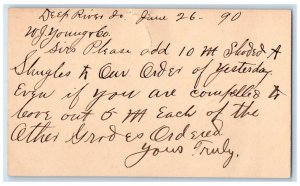 Deep River Io. June 26 - 90
W.J. Young & Co.
Sirs Please add 10 M Shaded A
Shingles to Our Order of Yesterday
Even if you are compelled to
leave out 5 M Each of the
Other Grades Ordered
Yours Truly.